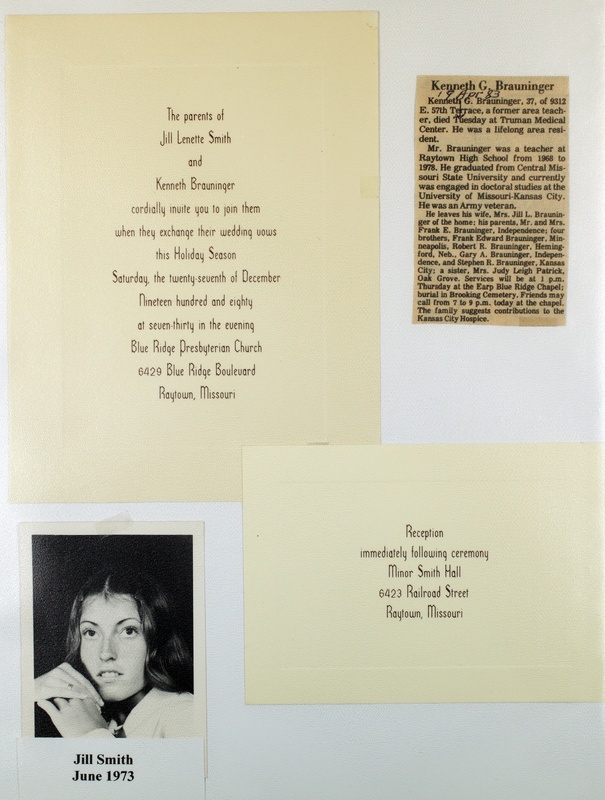 The parents of
Jill Lenette Smith
and
Kenneth Brauninger
cordially invite you to join them
when they exchange their wedding vows
this Holiday Season
Saturday, the twenty-seventh of December
Nineteen hundred and eighty
at seven-thirty in the evening
Blue Ridge Presbyterian Church
6429 Blue Ridge Boulevard
Raytown, Missouri
Kenneth G. Brauninger
19 Apr 83
Kenneth G. Brauninger, 37, of 9312
E. 57th Terrace, a former area teach-
er, died Tuesday at Truman Medical
Center. He was a lifelong area resi-
dent.
Mr. Brauninger was a teacher at
Raytown High School from 1968 to
1978. He graduated from Central Mis-
souri State University and currently
was engaged in doctoral studies at the
University of Missouri-Kansas City.
He was an Army veteran.
He leaves his wife, Mrs. Jill L. Braunin-
ger of the home; his parents, Mr. and Mrs.
Frank E. Brauninger, Independence; four
brothers, Frank Edward Brauninger, Min-
neapolis, Robert R. Brauninger, Heming-
ford, Neb., Gary A. Brauninger, Indepen-
dence, and Stephen R. Brauninger, Kansas
City; a sister, Mrs. Judy Leigh Patrick,
Oak Grove. Services will be at 1 p.m.
Thursday at the Earp Blue Ridge Chapel;
burial in Brooking Cemetery. Friends may
call from 7 to 9 p.m. today at the chapel.
The family suggests contributions to the
Kansas City Hospice.
Reception
immediately following ceremony
Minor Smith Hall
6423 Railroad Street
Raytown, Missouri
Jill Smith
June 1973